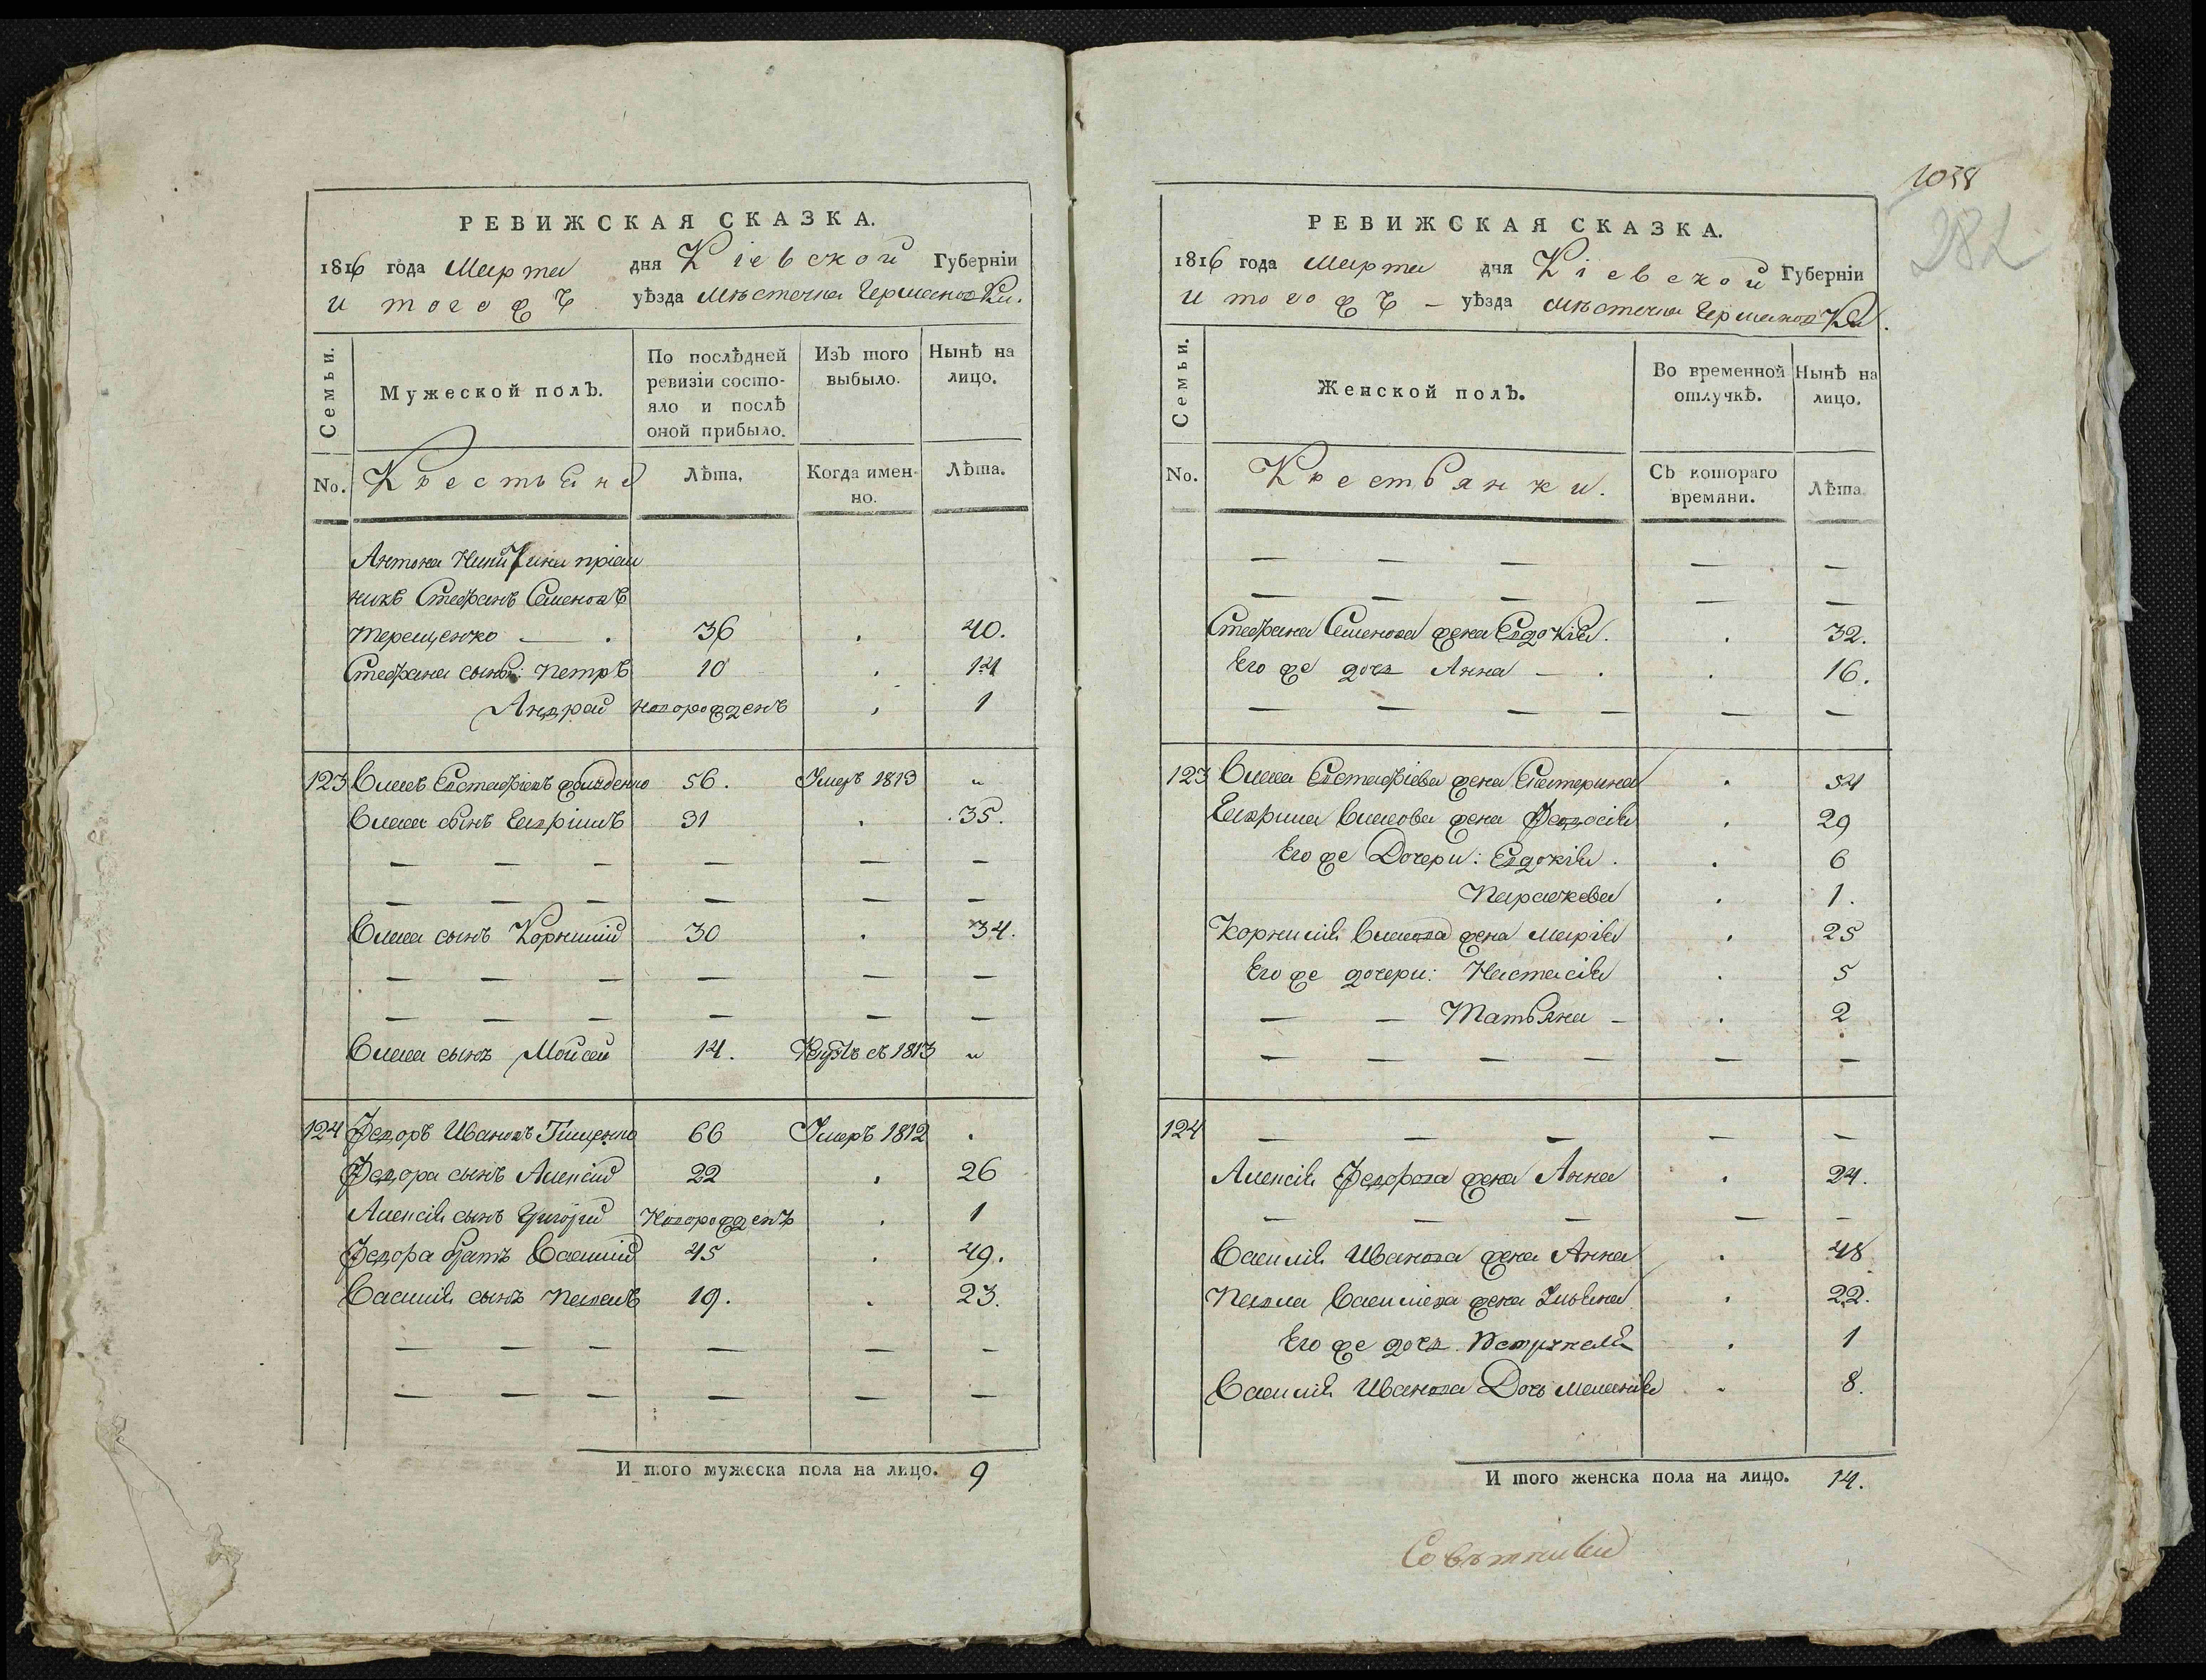 РЕВИЖСКАЯ СКАЗКА.
1816 года Марта дня Кіевской Губерніи
и тогожъ уѣзда Мѣстечка Германовки.
Семьи.
Мужеской полъ.
По послѣдней ревизіи состо-
яло и послѣ
оной прибыло.
Изъ того выбыло.
Нынѣ на лицо.
No. Крестьяне Лѣта. Когда имен-
но. Лѣта.
Антона Никитина пріем
никъ Стефанъ Семеновъ
Терещенко — . 36 . 40.
Стефана сыны: Петръ 10 . 14
Андрей новорожденъ . 1
123 Евстафіевъ 56. Умеръ 1813 "
сынъ 31 . .35.
— — — — — —
— — — — — —
сынъ Корнилій 30 . 34.
— — — — — —
— — — — — —
сынъ Мойсей 14. съ 1813 "
124 Федоръ Ивановъ Тищенко 66 Умеръ 1812 .
Федора сынъ Алексій 22 . 26
Алексія сынъ Григорій Новорожденъ . 1
Федора братъ Василій 45 . 49.
Василія сынъ Павелъ 19. . 23.
— — — — — —
— — — — — —
И того мужеска пола на лицо. 9
1038
282
РЕВИЖСКАЯ СКАЗКА.
1816 года Марта дня Кіевской Губерніи
и тогожъ — уѣзда Мѣстечка Германовки.
Семьи.
Женской полъ.
Во временной отлучкѣ.
Нынѣ на лицо.
No. Крестьянки. Съ котораго времяни. Лѣта.
— — — — —
— — — — —
Стефана Семенова жена Евдокія. . 32.
Его же дочь Анна — . . 16.
— — — — — —
123 Евстафіева жена Екатерина . 54
жена Феодосія . 29
Его же Дочери: Евдокія . . 6
Параскева . 1.
Корнилія жена Марія . 25
Его же дочери: Настасія . 5
— — Татьяна — . 2
— — — — — —
124 — — — — —
Алексія Федорова жена Анна . 24.
— — — — —
Василія Иванова жена Анна . 48
Павла Васильева жена Ульяна . 22.
Его же дочь . 1
Василія Иванова Дочь Меланія . 8.
И того женска пола на лицо. 14.